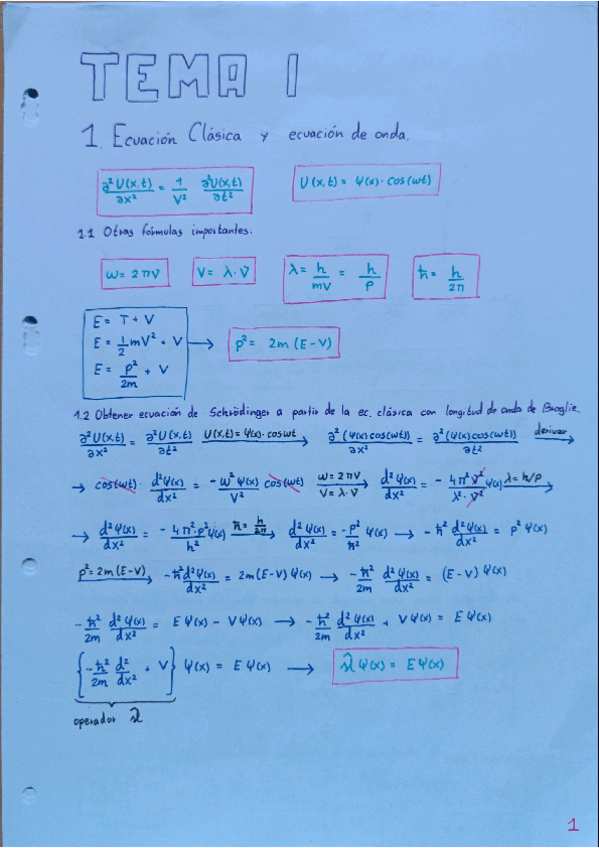 TEMA 1
1. Ecuación Clásica y ecuación de onda.
∂²U(x,t)/∂x² = 1/V² ∂²U(x,t)/∂t²    U(x,t) = Ψ(x)·cos(ωt)
1.1 Otras fórmulas importantes.
ω = 2πν    V = λ·ν    λ = h/mV = h/p    ħ = h/2π
E = T + V
E = 1/2 mV² + V → p² = 2m (E-V)
E = p²/2m + V
1.2 Obtener ecuación de Schrödinger a partir de la ec. clásica con longitud de onda de Broglie.
∂²U(x,t)/∂x² = ∂²U(x,t)/∂t² U(x,t) = Ψ(x)·cosωt → ∂²(Ψ(x)cos(ωt))/∂x² = ∂²(Ψ(x)cos(ωt))/∂t² derivar →
→ cos(ωt)· d²Ψ(x)/dx² = -ω²Ψ(x)/V² cos(ωt) ω=2πν V=λ·ν → d²Ψ(x)/dx² = - 4π²ν²/λ²·ν² Ψ(x) λ=h/p →
→ d²Ψ(x)/dx² = - 4π²·p²/h² Ψ(x) ħ=h/2π → d²Ψ(x)/dx² = -p²/ħ² Ψ(x) → -ħ² d²Ψ(x)/dx² = p² Ψ(x)
p²=2m(E-V) → -ħ² d²Ψ(x)/dx² = 2m(E-V)Ψ(x) → -ħ²/2m d²Ψ(x)/dx² = (E-V)Ψ(x)
-ħ²/2m d²Ψ(x)/dx² = EΨ(x) - VΨ(x) → -ħ²/2m d²Ψ(x)/dx² + VΨ(x) = EΨ(x)
{-ħ²/2m d²/dx² + V} Ψ(x) = EΨ(x) → Ĥ Ψ(x) = EΨ(x)
operador Ĥ
1